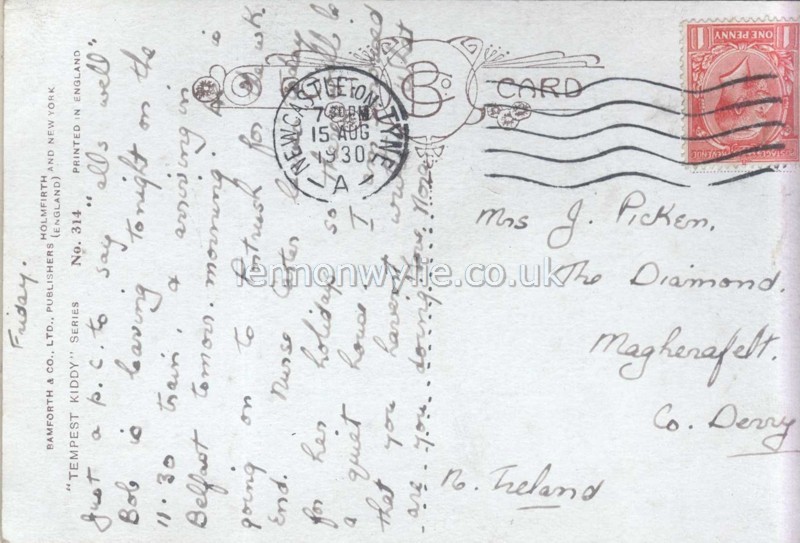 BAMFORTH & CO., LTD., PUBLISHERS HOLMFIRTH AND NEW YORK.
(ENGLAND)
"TEMPEST KIDDY" SERIES No. 314 PRINTED IN ENGLAND
CARD
NEWCASTLE-ON-TYNE
15 AUG
1930
A
ONE PENNY
1 1
Friday.
Just a p.c. to say "all's well"
Bob is leaving tonight on the
11.30 train, & arriving in
Belfast tomorr. morning. is
going on to Portrush for wk.
End. Nurse Carter
for her holiday so
a quiet house I
that you haven't
are you doing
Mrs J. Picken.
The Diamond.
Magherafelt.
Co. Derry
N. Ireland
lemonwylie.co.uk